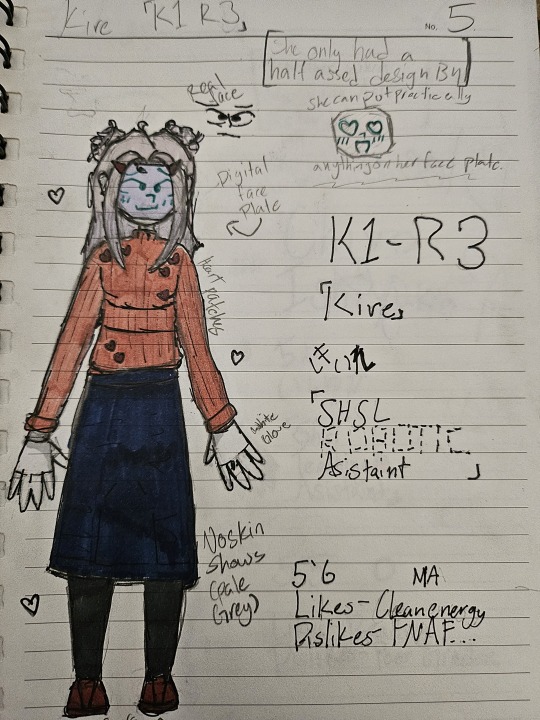 Kire 「K1 R3」
No. 5
She only had a
half assed design By
she can put practically
anything on her face plate.
Real
face
Digital
face
Plate
heart patches
K1-R3
「Kire」
きいれ
「SHSL
ROBOTIC
Asistaint 」
white
Glove
No skin
shows
(pale
Grey)
5'6 MA
Likes- Clean energy
Dislikes- FNAF...